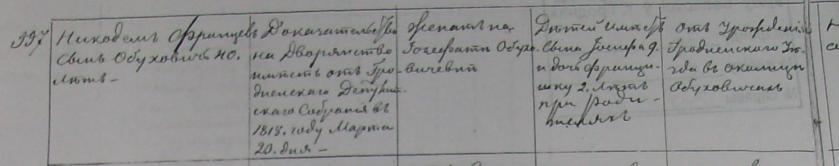 997
Никодемъ Францевъ
Сынъ Обуховичъ 40.
лѣтъ –
Доказательства
на Дворянство
имѣетъ отъ Гро-
дненскаго Депутат-
скаго Собранія въ
1818. году Марта
20. дня –
Женатъ на
Іозефатѣ Обухо-
вичевой
Дѣтей имѣетъ
Сына Іосифа 9.
и дочь Францы-
шку 2. лѣтъ
при роди-
теляхъ
отъ урожденія
Гродненскаго Уѣ-
зда въ околицы
Обуховичахъ